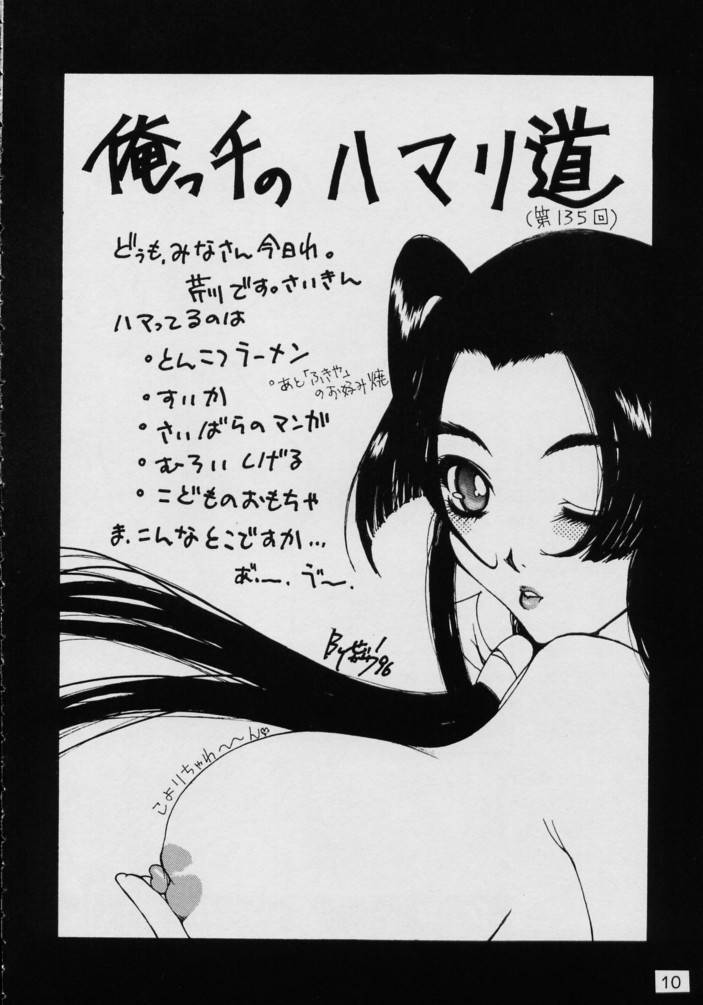 俺っチの ハマリ道
(第135回)
どぅも、みなさん今日わ。
荒川です。さいきん
ハマってるのは
・とんこつラーメン
・あと「ふきや」
のお好み焼
・すいか
・さいばらのマンガ
・むろいしげる
・こどものおもちゃ
ま、こんなとこですか…
あ゛ー、う゛ー、
By
96
こよりちゃわ〜〜ん♡
10